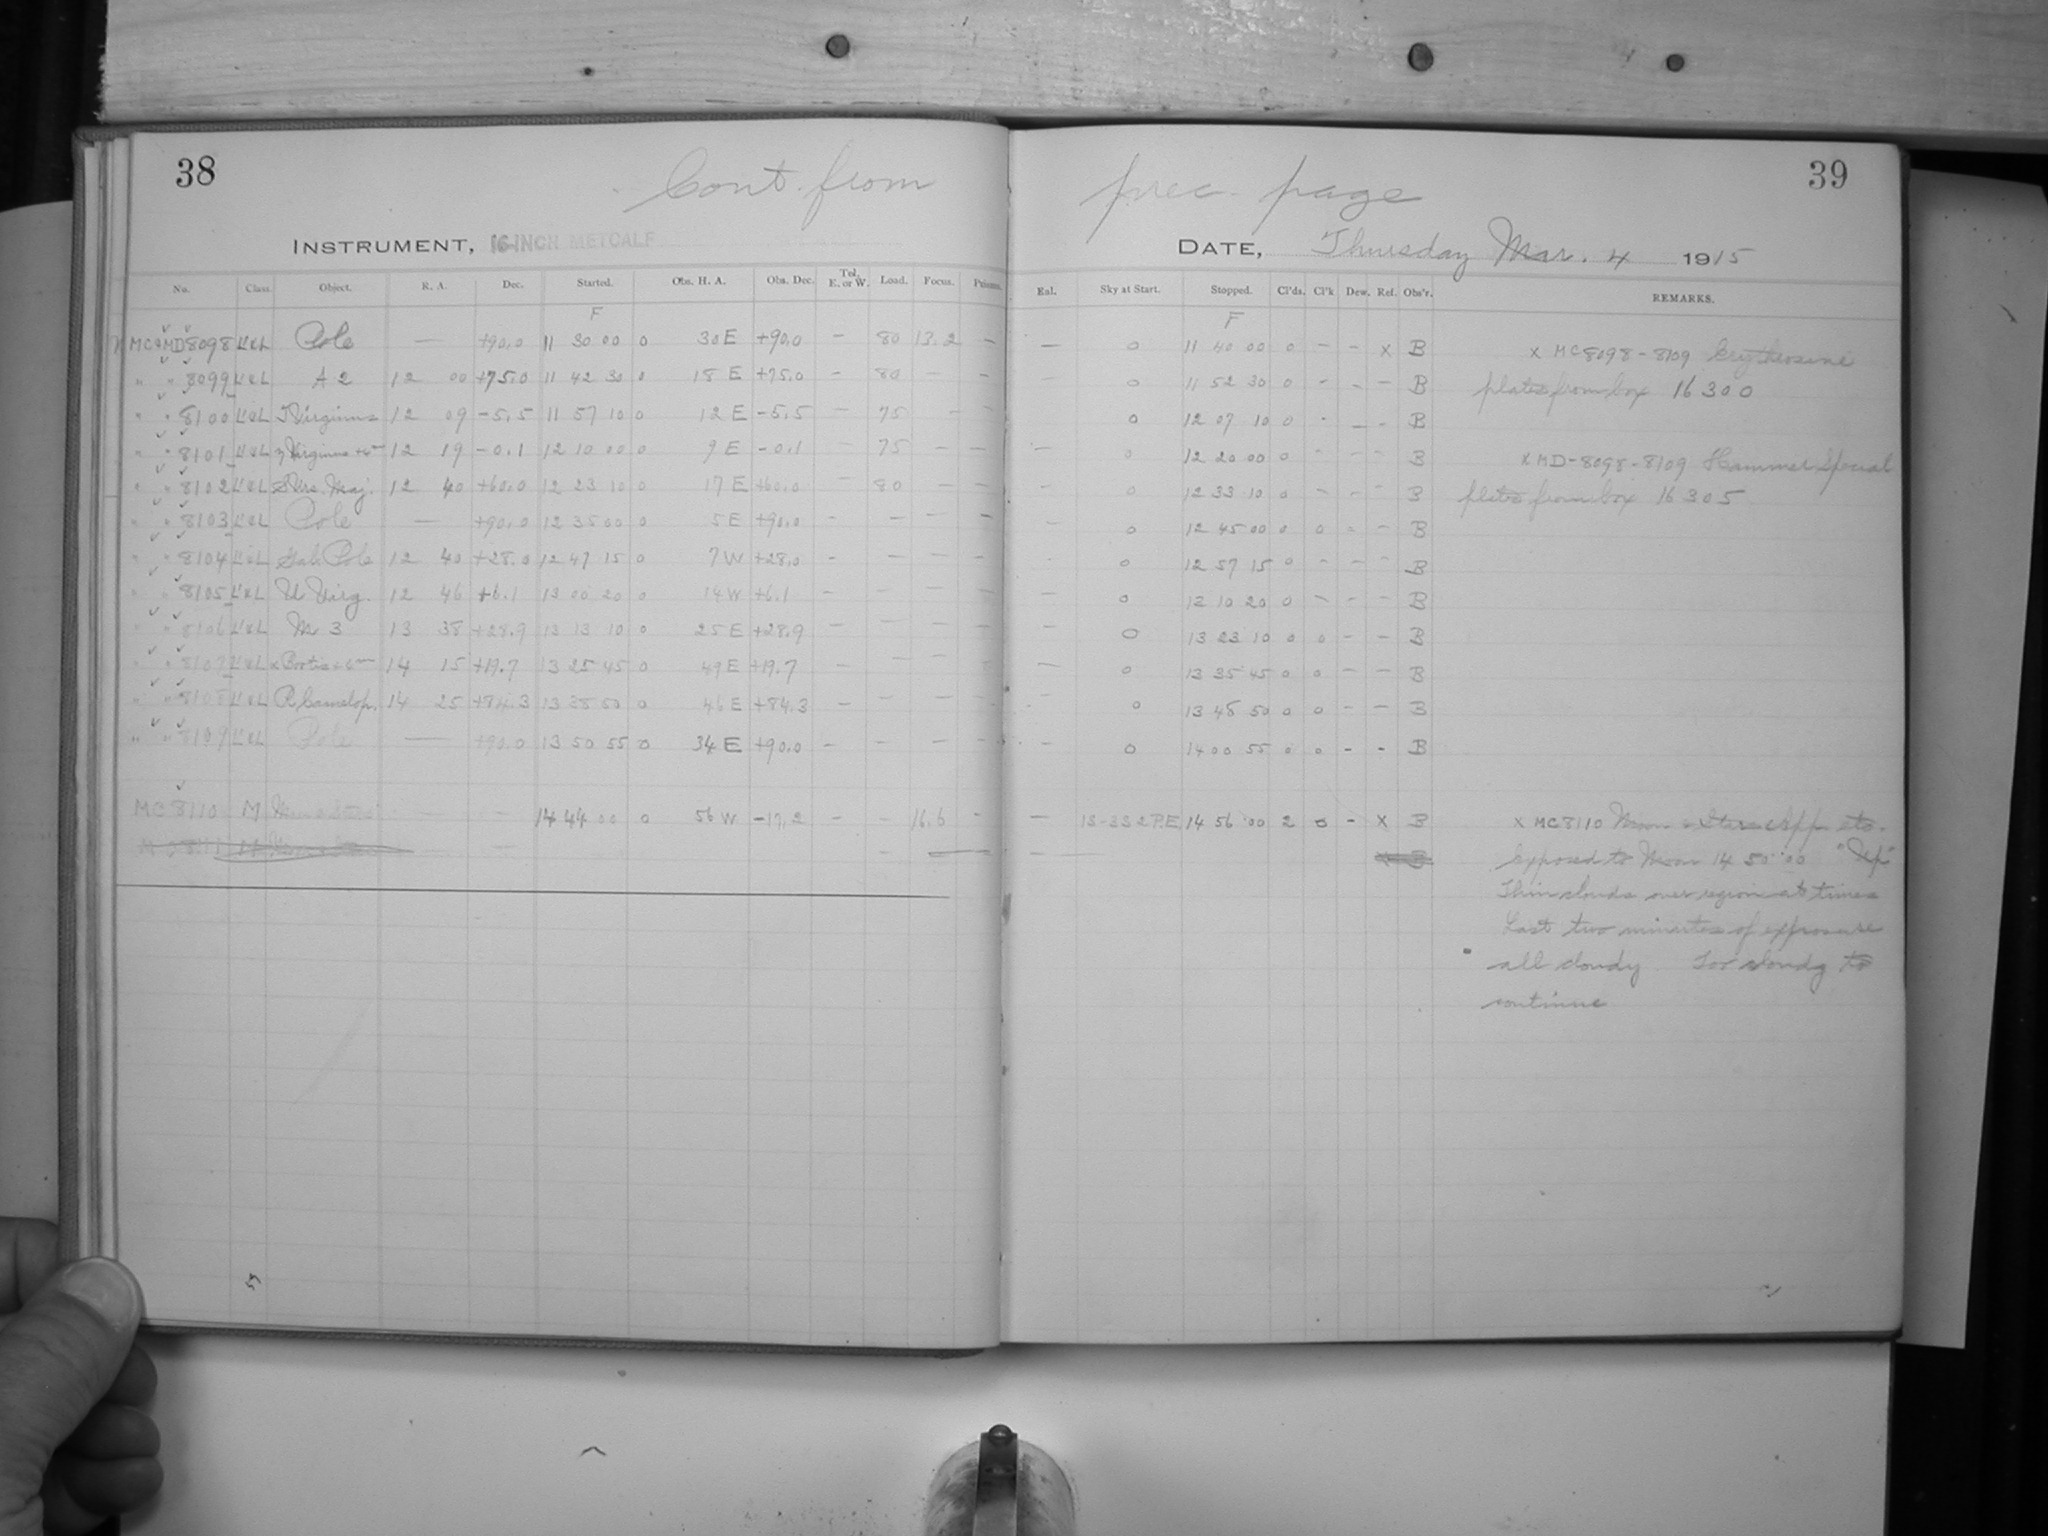 38
39
Cont. from prec. page
INSTRUMENT, 16-INCH METCALF
DATE, Thursday Mar. 4 1915
No. Class. Object. R. A. Dec. Started. Obs. H. A. Obs. Dec. Tel. E. or W. Load. Focus. Ent. Sky at Start. Stopped. Cl'ds. Cl'k Dew. Ref. Obs'r. REMARKS.
F F
MC&MD8098 L'&L Pole — +90.0 11 30 00 0 30 E +90.0 – 80 13.2 – — 0 11 40 00 0 – – x B x MC8098-8109 Erytheosine
" " 8099 L'&L A 2 12 00 +75.0 11 42 30 0 18 E +75.0 – 80 – – — 0 11 52 30 0 – – – B plates from box 16300
" " 8100 L'&L Virginus 12 09 -5.5 11 57 10 0 12 E -5.5 – 75 – – 0 12 07 10 0 – – – B
" " 8101 L'&L η Virginus +6m 12 19 -0.1 12 10 00 0 9 E -0.1 – 75 – – — 0 12 20 00 0 – – – B x MD-8098-8109 Hammer Special
" " 8102 L'&L S Urs. Maj. 12 40 +60.0 12 23 10 0 17 E +60.0 – 80 – – – 0 12 33 10 0 – – – B plates from box 16305
" " 8103 L'&L Pole — +90.0 12 35 00 0 5 E +90.0 – – – – — 0 12 45 00 0 0 – – B
" " 8104 L'&L Gal. Pole 12 40 +28.0 12 47 15 0 7 W +28.0 – – – – 0 12 57 15 0 – – – B
" " 8105 L'&L U Virg. 12 46 +6.1 13 00 20 0 14 W +6.1 – – – – — 0 13 10 20 0 – – – B
" " 8106 L'&L M 3 13 38 +28.9 13 13 10 0 25 E +28.9 – – – – – 0 13 23 10 0 0 – – B
" " 8107 L'&L α Bootis +6m 14 15 +19.7 13 25 45 0 49 E +19.7 – – – — 0 13 35 45 0 0 – – B
" " 8108 L'&L R Camelop. 14 25 +84.3 13 38 50 0 46 E +84.3 – – – – – 0 13 48 50 0 0 – – B
" " 8109 L'&L Pole — +90.0 13 50 55 0 34 E +90.0 – – – – – 0 14 00 55 0 0 – – B
MC 8110 M Moon & Stars – – 14 44 00 0 56 W -17.2 – – 16.6 – — 13-332 P.E. 14 56 00 2 0 – x B x MC8110 Moon & Stars
MC 8111 M Moon & Stars Exposed to Moon 14 50 00
Thin clouds over region at times
Last two minutes of exposure
all cloudy Too cloudy to
continue